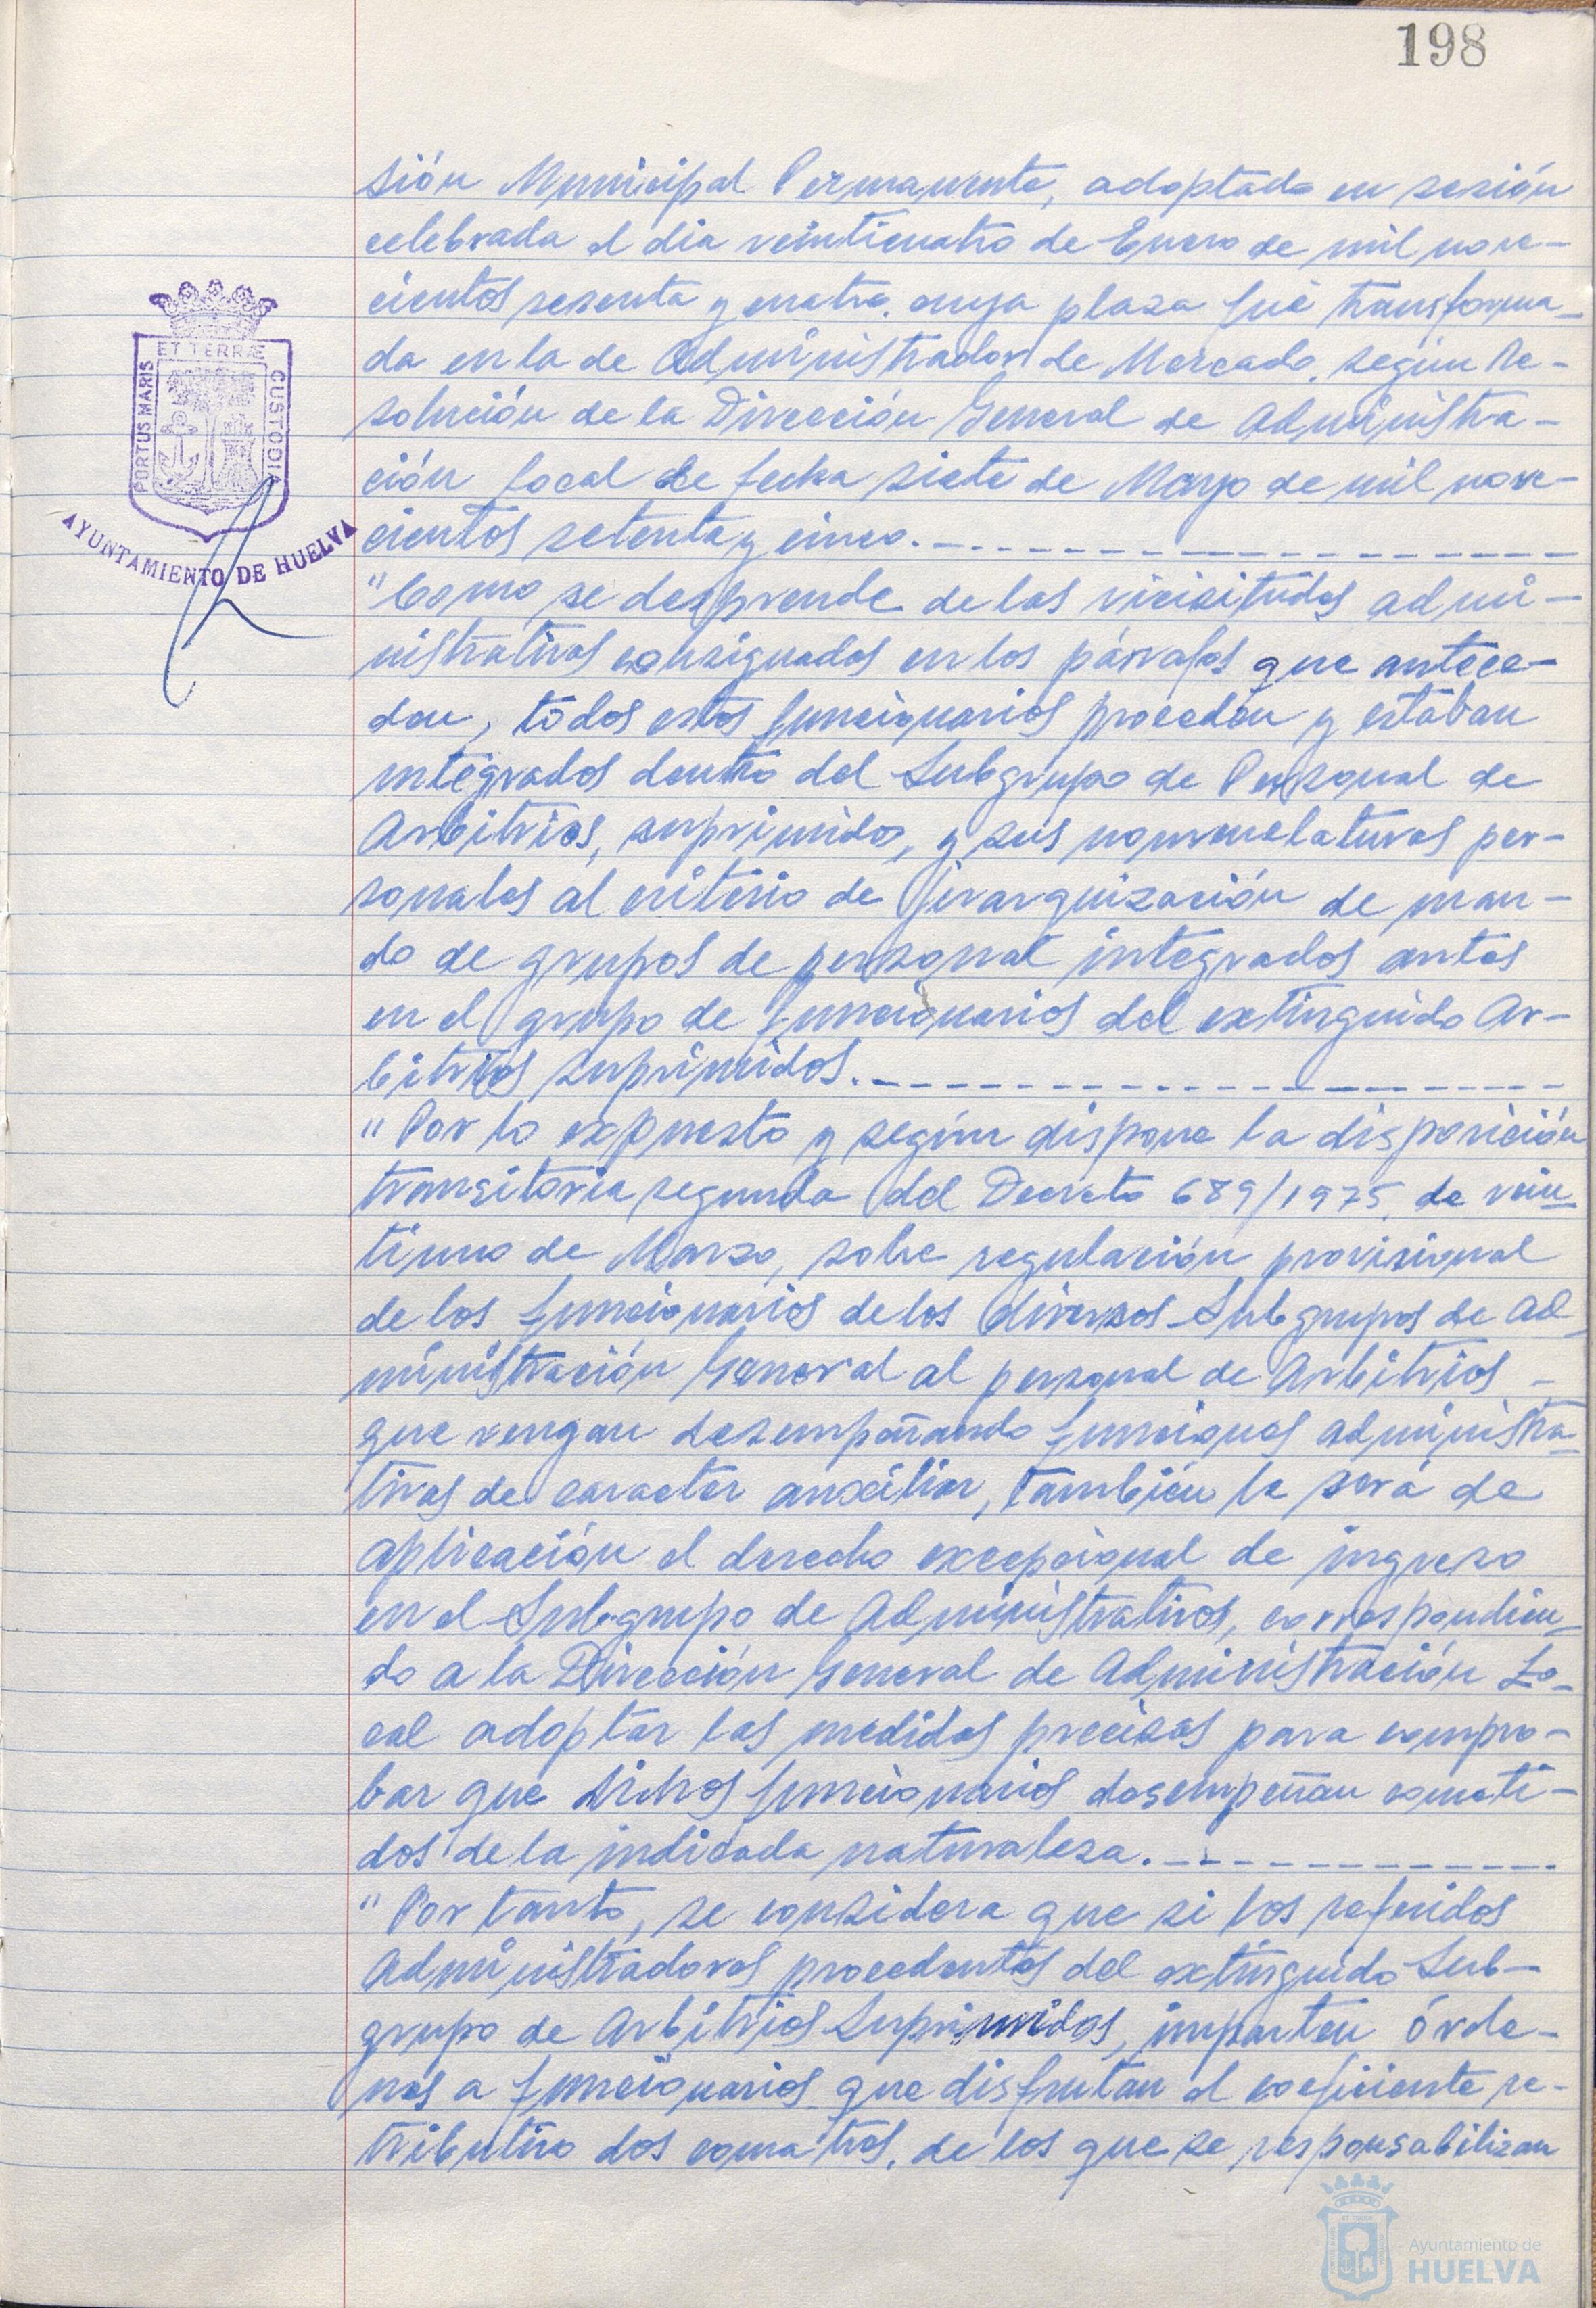 198
sión Municipal Permanente, adoptado en sesión
celebrada el dia veinticuatro de Enero de mil nove-
cientos sesenta y cuatro, cuya plaza fué transforma-
da en la de Administrador de Mercado, según Re-
solución de la Dirección General de Administra-
ción Local de fecha siete de Mayo de mil nove-
cientos setenta y cinco.
"Como se desprende de las vicisitudes admi-
nistrativas consignadas en los párrafos que antece-
den, todos estos funcionarios proceden y estaban
integrados dentro del Subgrupo de Personal de
Arbitrios, suprimido, y sus nomenclaturas per-
sonales al criterio de jerarquización de man-
do de grupos de personal integrados antes
en el grupo de funcionarios del extinguido Ar-
bitrios suprimidos.
"Por lo expuesto y según dispone la disposición
transitoria segunda del Decreto 689/1975, de vein-
tiuno de Marzo, sobre regulación provisional
de los funcionarios de los diversos Subgrupos de Ad-
ministración General al personal de Arbitrios -
que vengan desempeñando funciones administra-
tivas de caracter auxiliar, también le será de
aplicación el derecho excepcional de ingreso
en el Subgrupo de Administrativos, correspondien-
do a la Dirección General de Administración Lo-
cal adoptar las medidas precisas para compro-
bar que dichos funcionarios desempeñan cometi-
dos de la indicada naturaleza.
"Por tanto, se considera que si los referidos
Administradores procedentes del extinguido Sub-
grupo de Arbitrios Suprimidos, imparten órde-
nes a funcionarios que disfrutan el coeficiente re-
tributivo dos coma tres, de los que se responsabilizan
PORTUS MARIS
ET TERRÆ
CUSTODI
AYUNTAMIENTO DE HUELVA
Ayuntamiento de
HUELVA